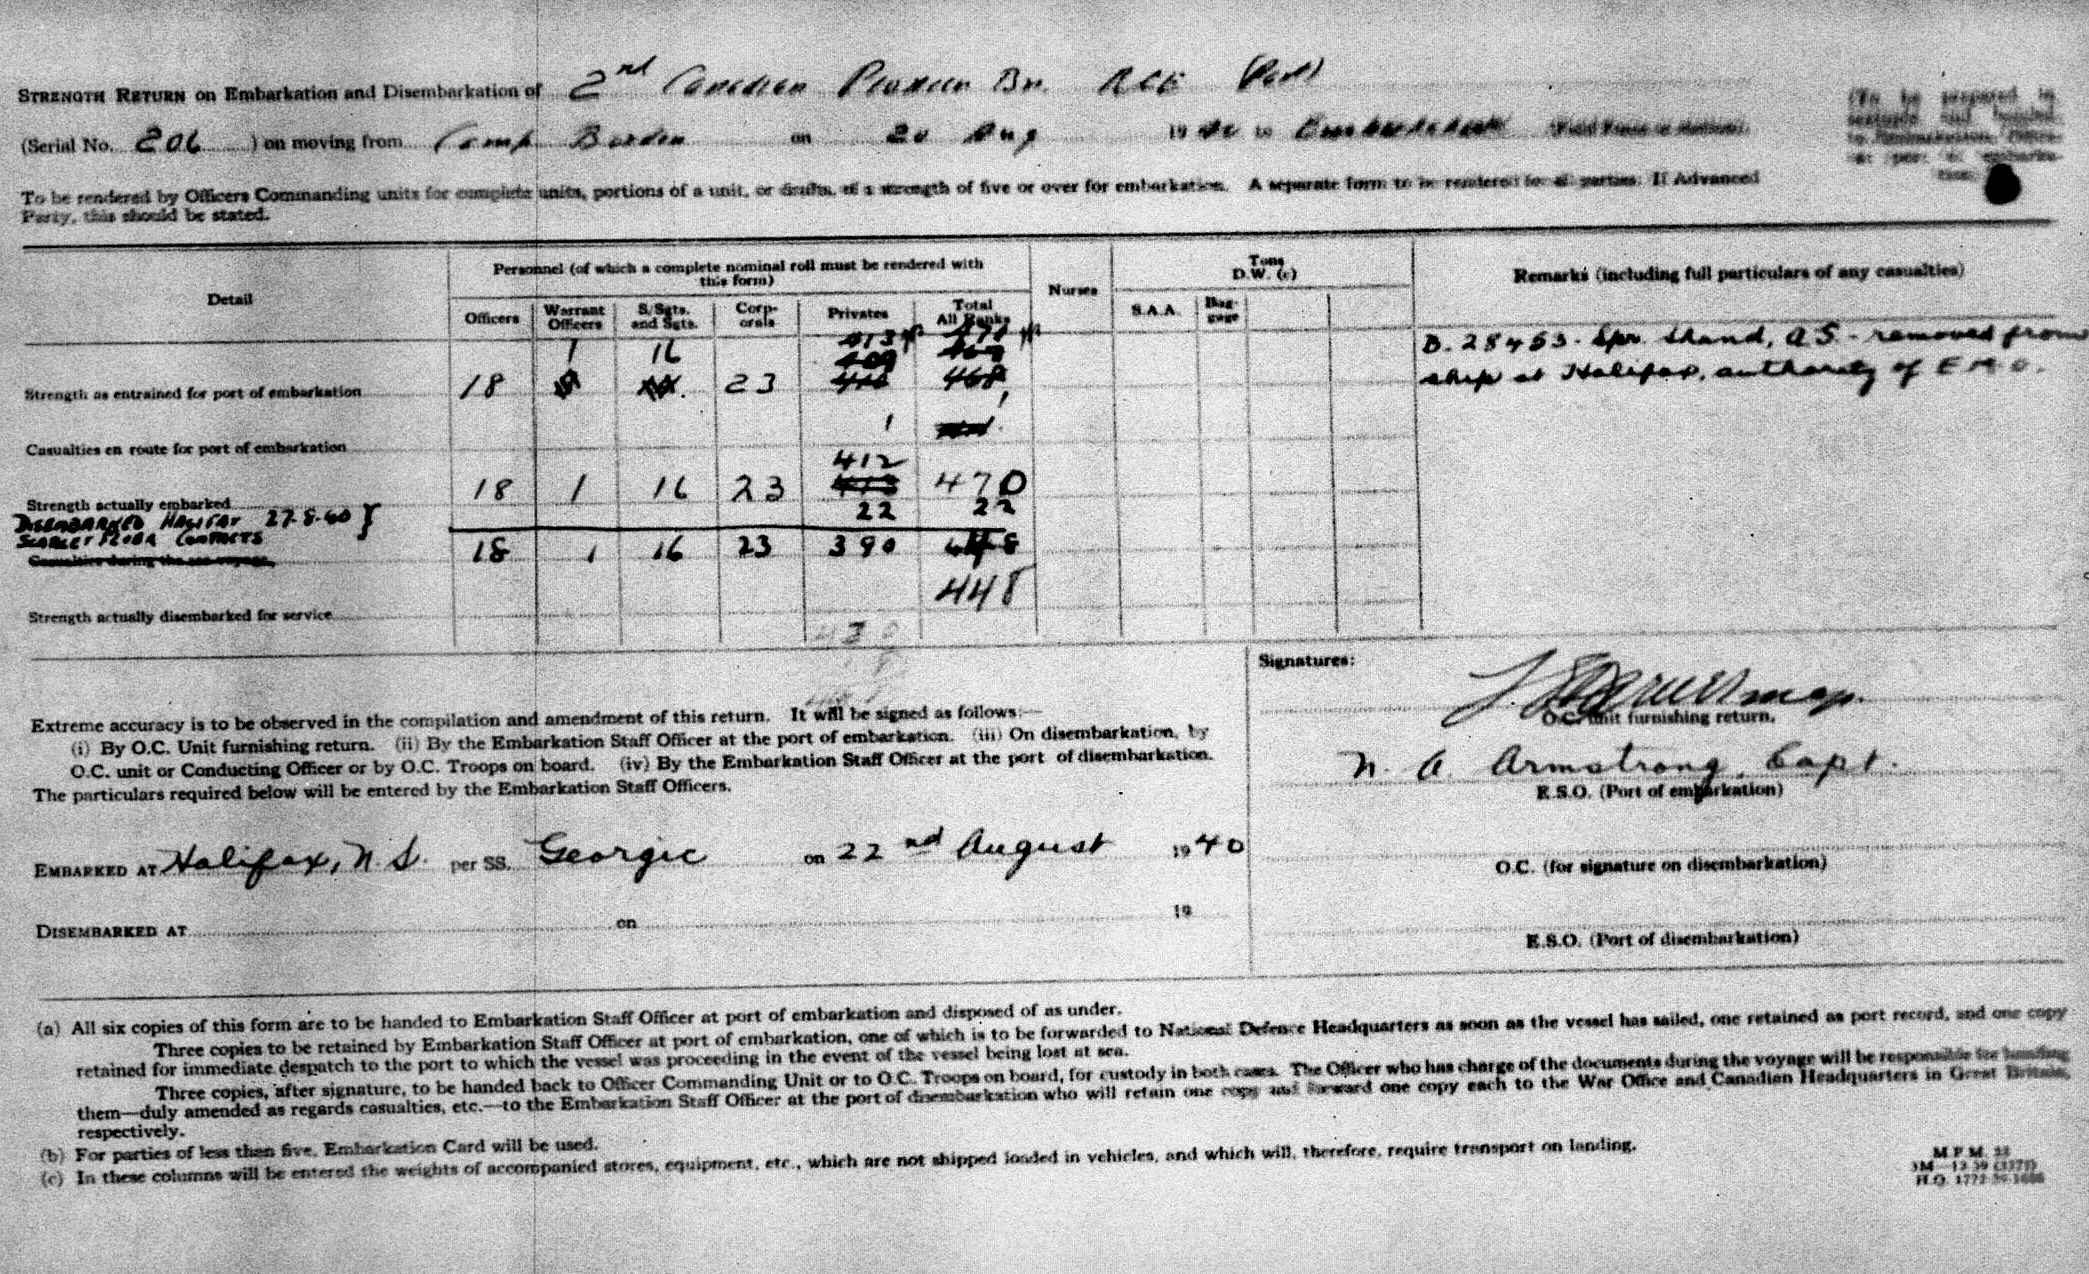 STRENGTH RETURN on Embarkation and Disembarkation of 2nd Canadian Pioneer Bn. RCE (Part)
(Serial No. 206 ) on moving from Camp Borden on 20 Aug 1940 to
(To be prepared in
To be rendered by Officers Commanding units for complete units, portions of a unit, or drafts, of a strength of five or over for embarkation. A separate form to be rendered for all parties. If Advanced
Party, this should be stated.
Detail
Personnel (of which a complete nominal roll must be rendered with
this form)
Officers
Warrant
Officers
S/Sgts.
and Sgts.
Corp-
orals
Privates
Total
All Ranks
Nurses
Tons
D.W. (c)
S.A.A.
Bag-
gage
Remarks (including full particulars of any casualties)
413 471
1 16 409
Strength as entrained for port of embarkation 18 23 468
B. 28453 - Spr. Shand, A.S. - removed from
ship at Halifax, authority of E.M.O.
Casualties en route for port of embarkation 1 1
412
Strength actually embarked 18 1 16 23 413 470
DISEMBARKED HALIFAX 27-8-40 } 22 22
SCARLET FEVER CONTACTS
Casualties during the sea voyage. 18 1 16 23 390 448
448
Strength actually disembarked for service
Extreme accuracy is to be observed in the compilation and amendment of this return. It will be signed as follows:—
(i) By O.C. Unit furnishing return. (ii) By the Embarkation Staff Officer at the port of embarkation. (iii) On disembarkation, by
O.C. unit or Conducting Officer or by O.C. Troops on board. (iv) By the Embarkation Staff Officer at the port of disembarkation.
The particulars required below will be entered by the Embarkation Staff Officers.
EMBARKED AT Halifax, N.S. per SS. Georgic on 22nd August 1940
DISEMBARKED AT on 19
Signatures:
O.C. unit furnishing return.
N. A. Armstrong, Capt.
E.S.O. (Port of embarkation)
O.C. (for signature on disembarkation)
E.S.O. (Port of disembarkation)
(a) All six copies of this form are to be handed to Embarkation Staff Officer at port of embarkation and disposed of as under.
Three copies to be retained by Embarkation Staff Officer at port of embarkation, one of which is to be forwarded to National Defence Headquarters as soon as the vessel has sailed, one retained as port record, and one copy
retained for immediate despatch to the port to which the vessel was proceeding in the event of the vessel being lost at sea.
Three copies, after signature, to be handed back to Officer Commanding Unit or to O.C. Troops on board, for custody in both cases. The Officer who has charge of the documents during the voyage will be responsible for handing
them—duly amended as regards casualties, etc.—to the Embarkation Staff Officer at the port of disembarkation who will retain one copy and forward one copy each to the War Office and Canadian Headquarters in Great Britain,
respectively.
(b) For parties of less than five, Embarkation Card will be used.
(c) In these columns will be entered the weights of accompanied stores, equipment, etc., which are not shipped loaded in vehicles, and which will, therefore, require transport on landing.
M.F.M. 23
H.Q. 1772-39-1686